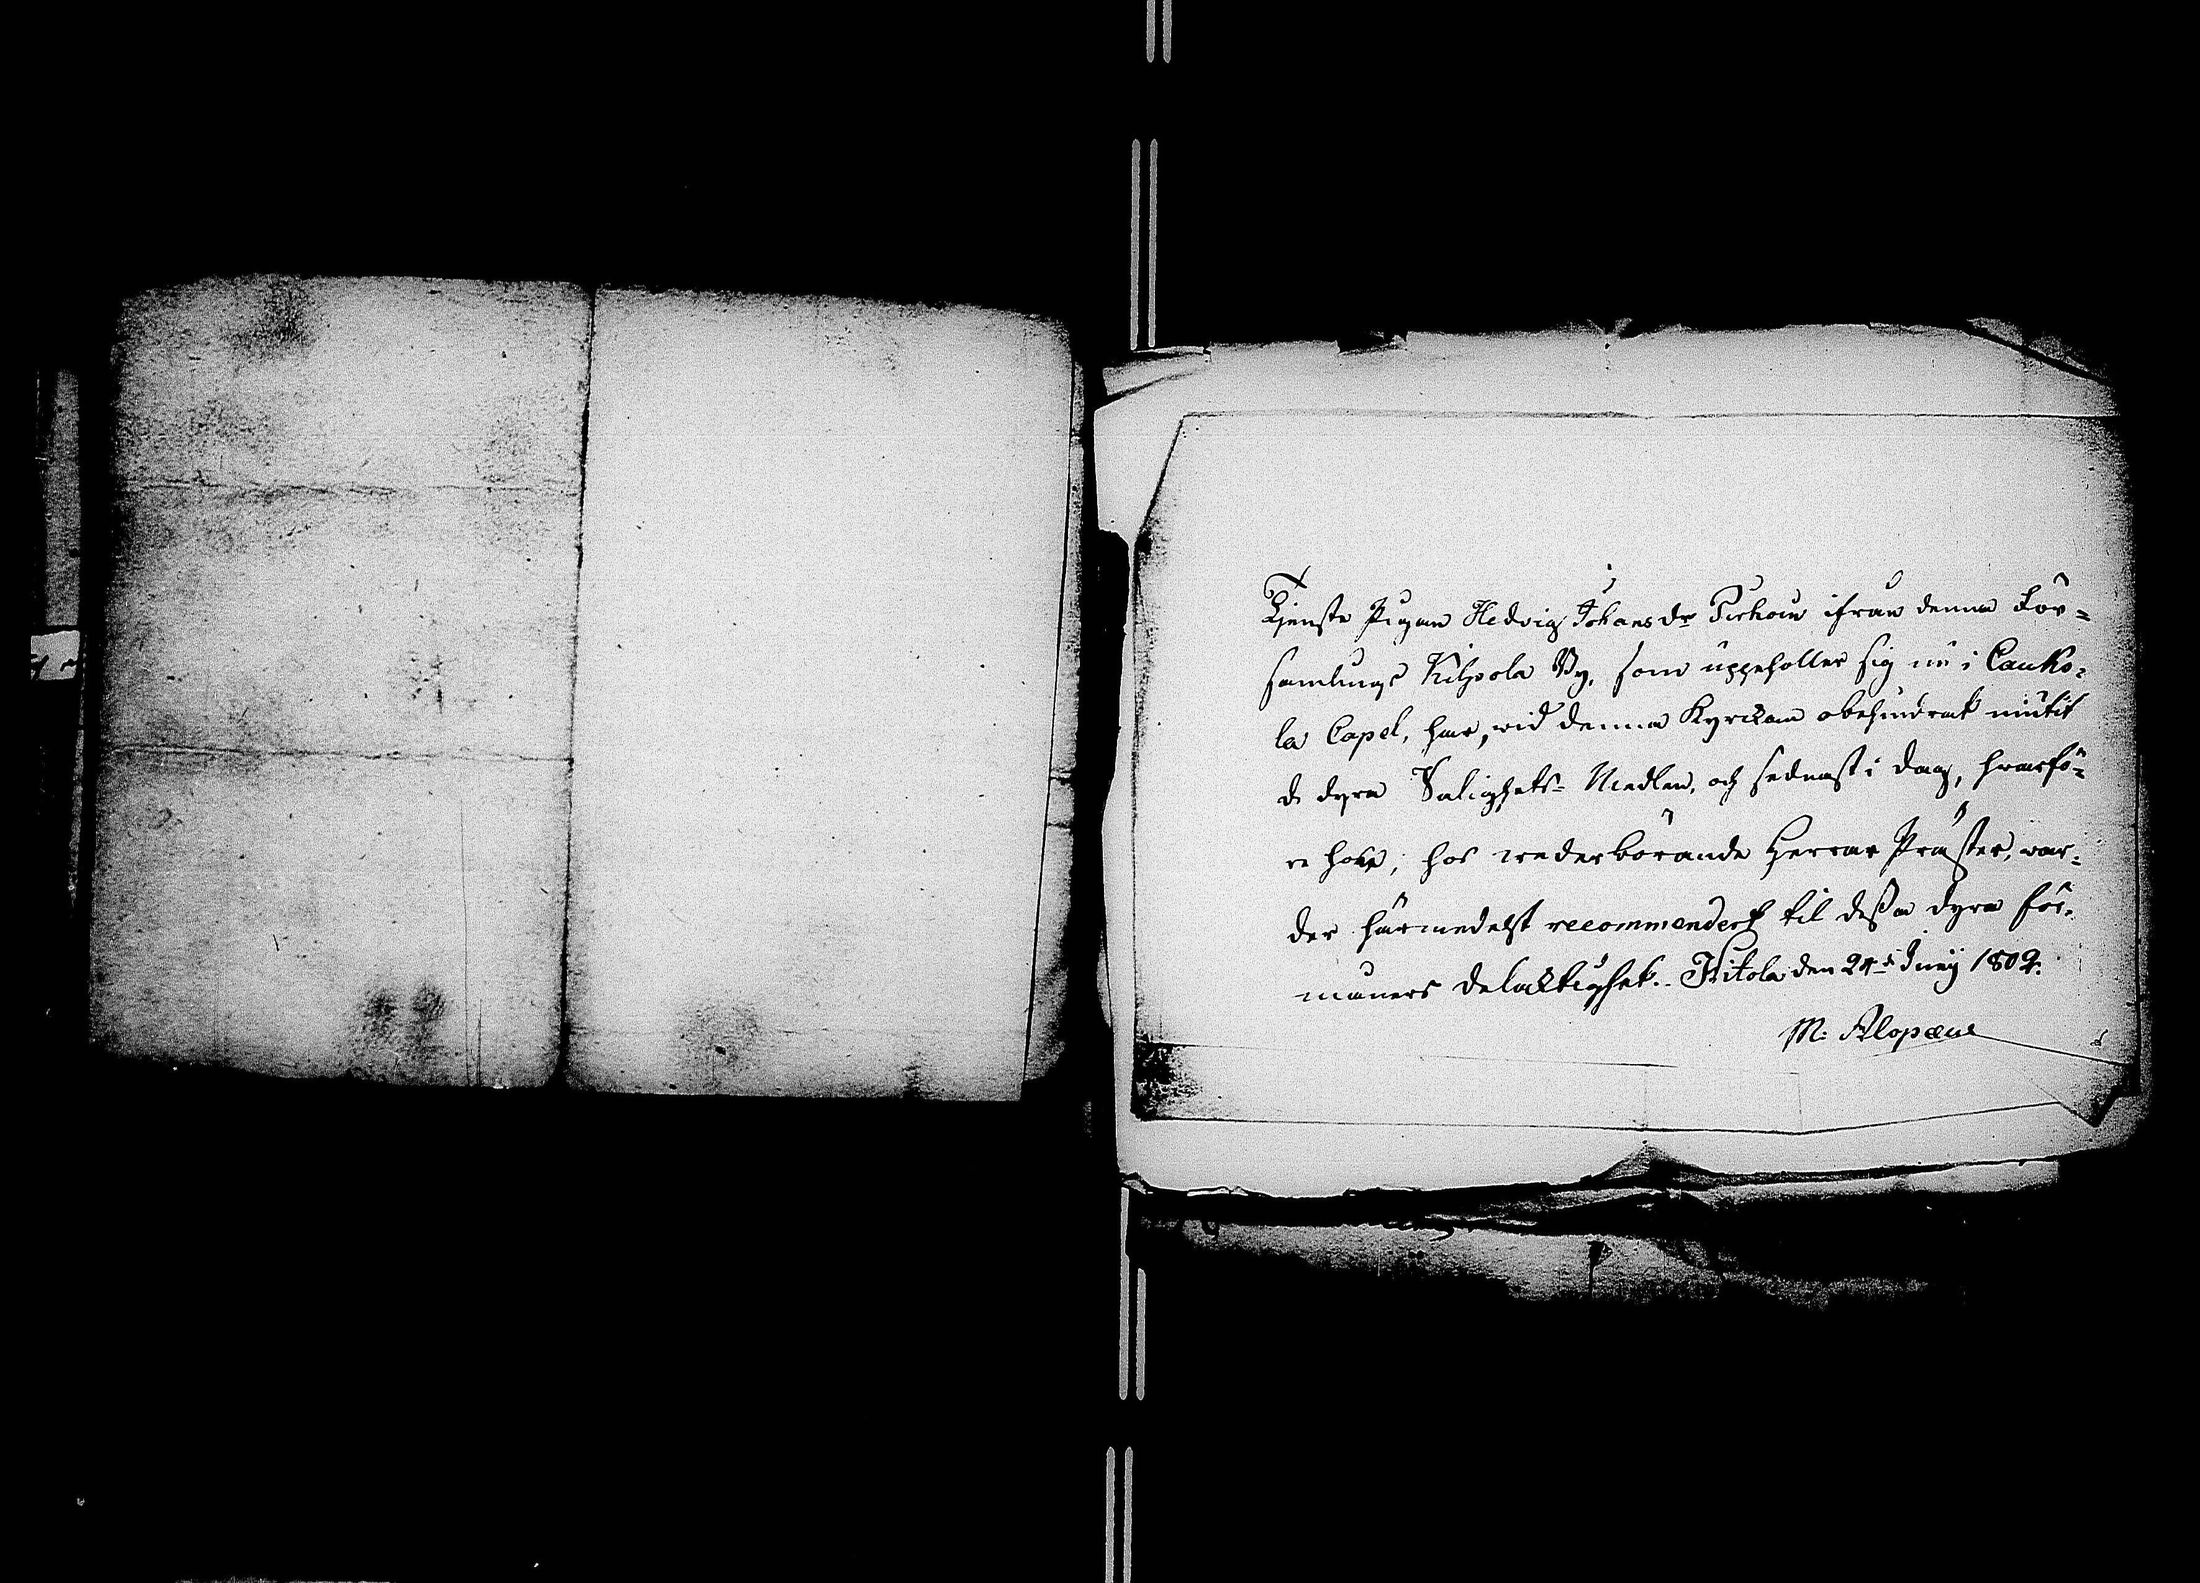 Tjenste Pigan Hedvig Johans dr Pirhoin ifrån denna För=
samlings Kilpola By, som uppehåller sig nu i Cauko=
la Capel, har, wid denna Kyrckan obehindrat niutit
de dyra Salighets= Medlen, och sednast i dag, hvarfö=
re hon, hos wederbörande Herrar Präster, war=
der härmedelst recommendert til dessa dyra för=
måners delacktighet. Hitola den 24 Junij 1802.
M. Alopæus